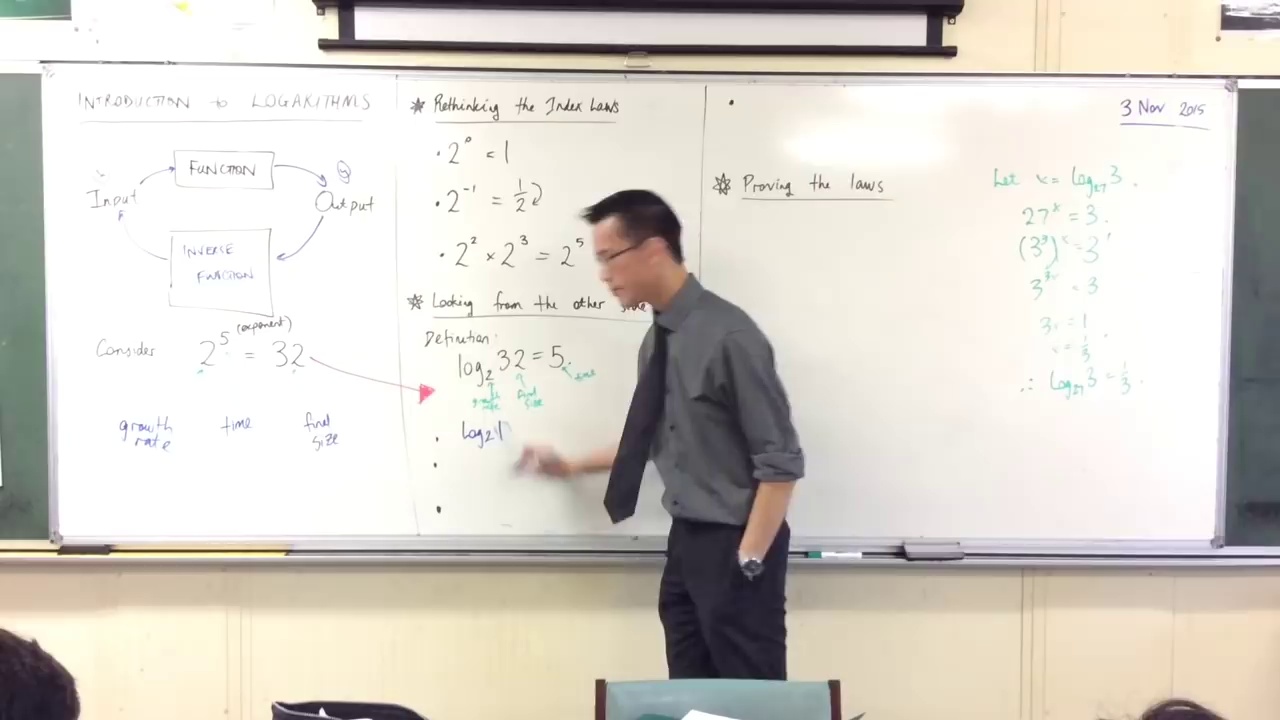 INTRODUCTION to LOGARITHMS
FUNCTION
Input
Output
INVERSE
FUNCTION
Consider 2^5 (exponent) = 32
growth
rate
time
final
size
Rethinking the Index Laws
• 2^0 = 1
• 2^-1 = 1/2
• 2^2 × 2^3 = 2^5
Looking from the other
Definition:
log_2 32 = 5
growth
rate
final
size
time
• log_2 1
Proving the laws
3 Nov 2015
Let x = log_27 3.
27^x = 3.
(3^3)^x = 3^1
3^3x = 3
3x = 1
x = 1/3
∴ log_27 3 = 1/3.